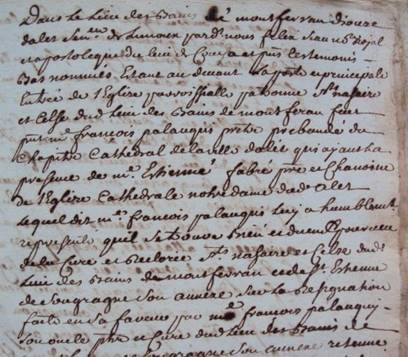 Dans le Lieu des Bains de montferran diocese
dalet Sen.ee de Limoux par.dt nous felix Jean no.re Royal
et apostolique du lieu de Couiza et puis les temoins
Bas nommés Estant au devant La porte principale
de l'Eglise parroissielle St nasaire
et Celse dud Lieu des Bains de montferan
m.e françois palauqui pretre prebandé du
Chapitre Cathedral de la ville dalet qui ayant la
presence de m.e Estienne fabre p.tre et Chanoine
de l'Eglise Cathedrale notre dame dud alet
Lequel dit m.e françois palauqui luy a humblem.t
representé quil se trouve Bien et duem.t pourveu
de la Cure et Rectorie Sts nasaire et Celse dud.
Lieu des Bains de montferran et de St Estienne
de Sougragne Son annexe Sur La Resignation
faite en Sa faveur par m.e françois palauqui
Son oncle p.tre et Curé dud Lieu des Bains de
Son annexe retenue